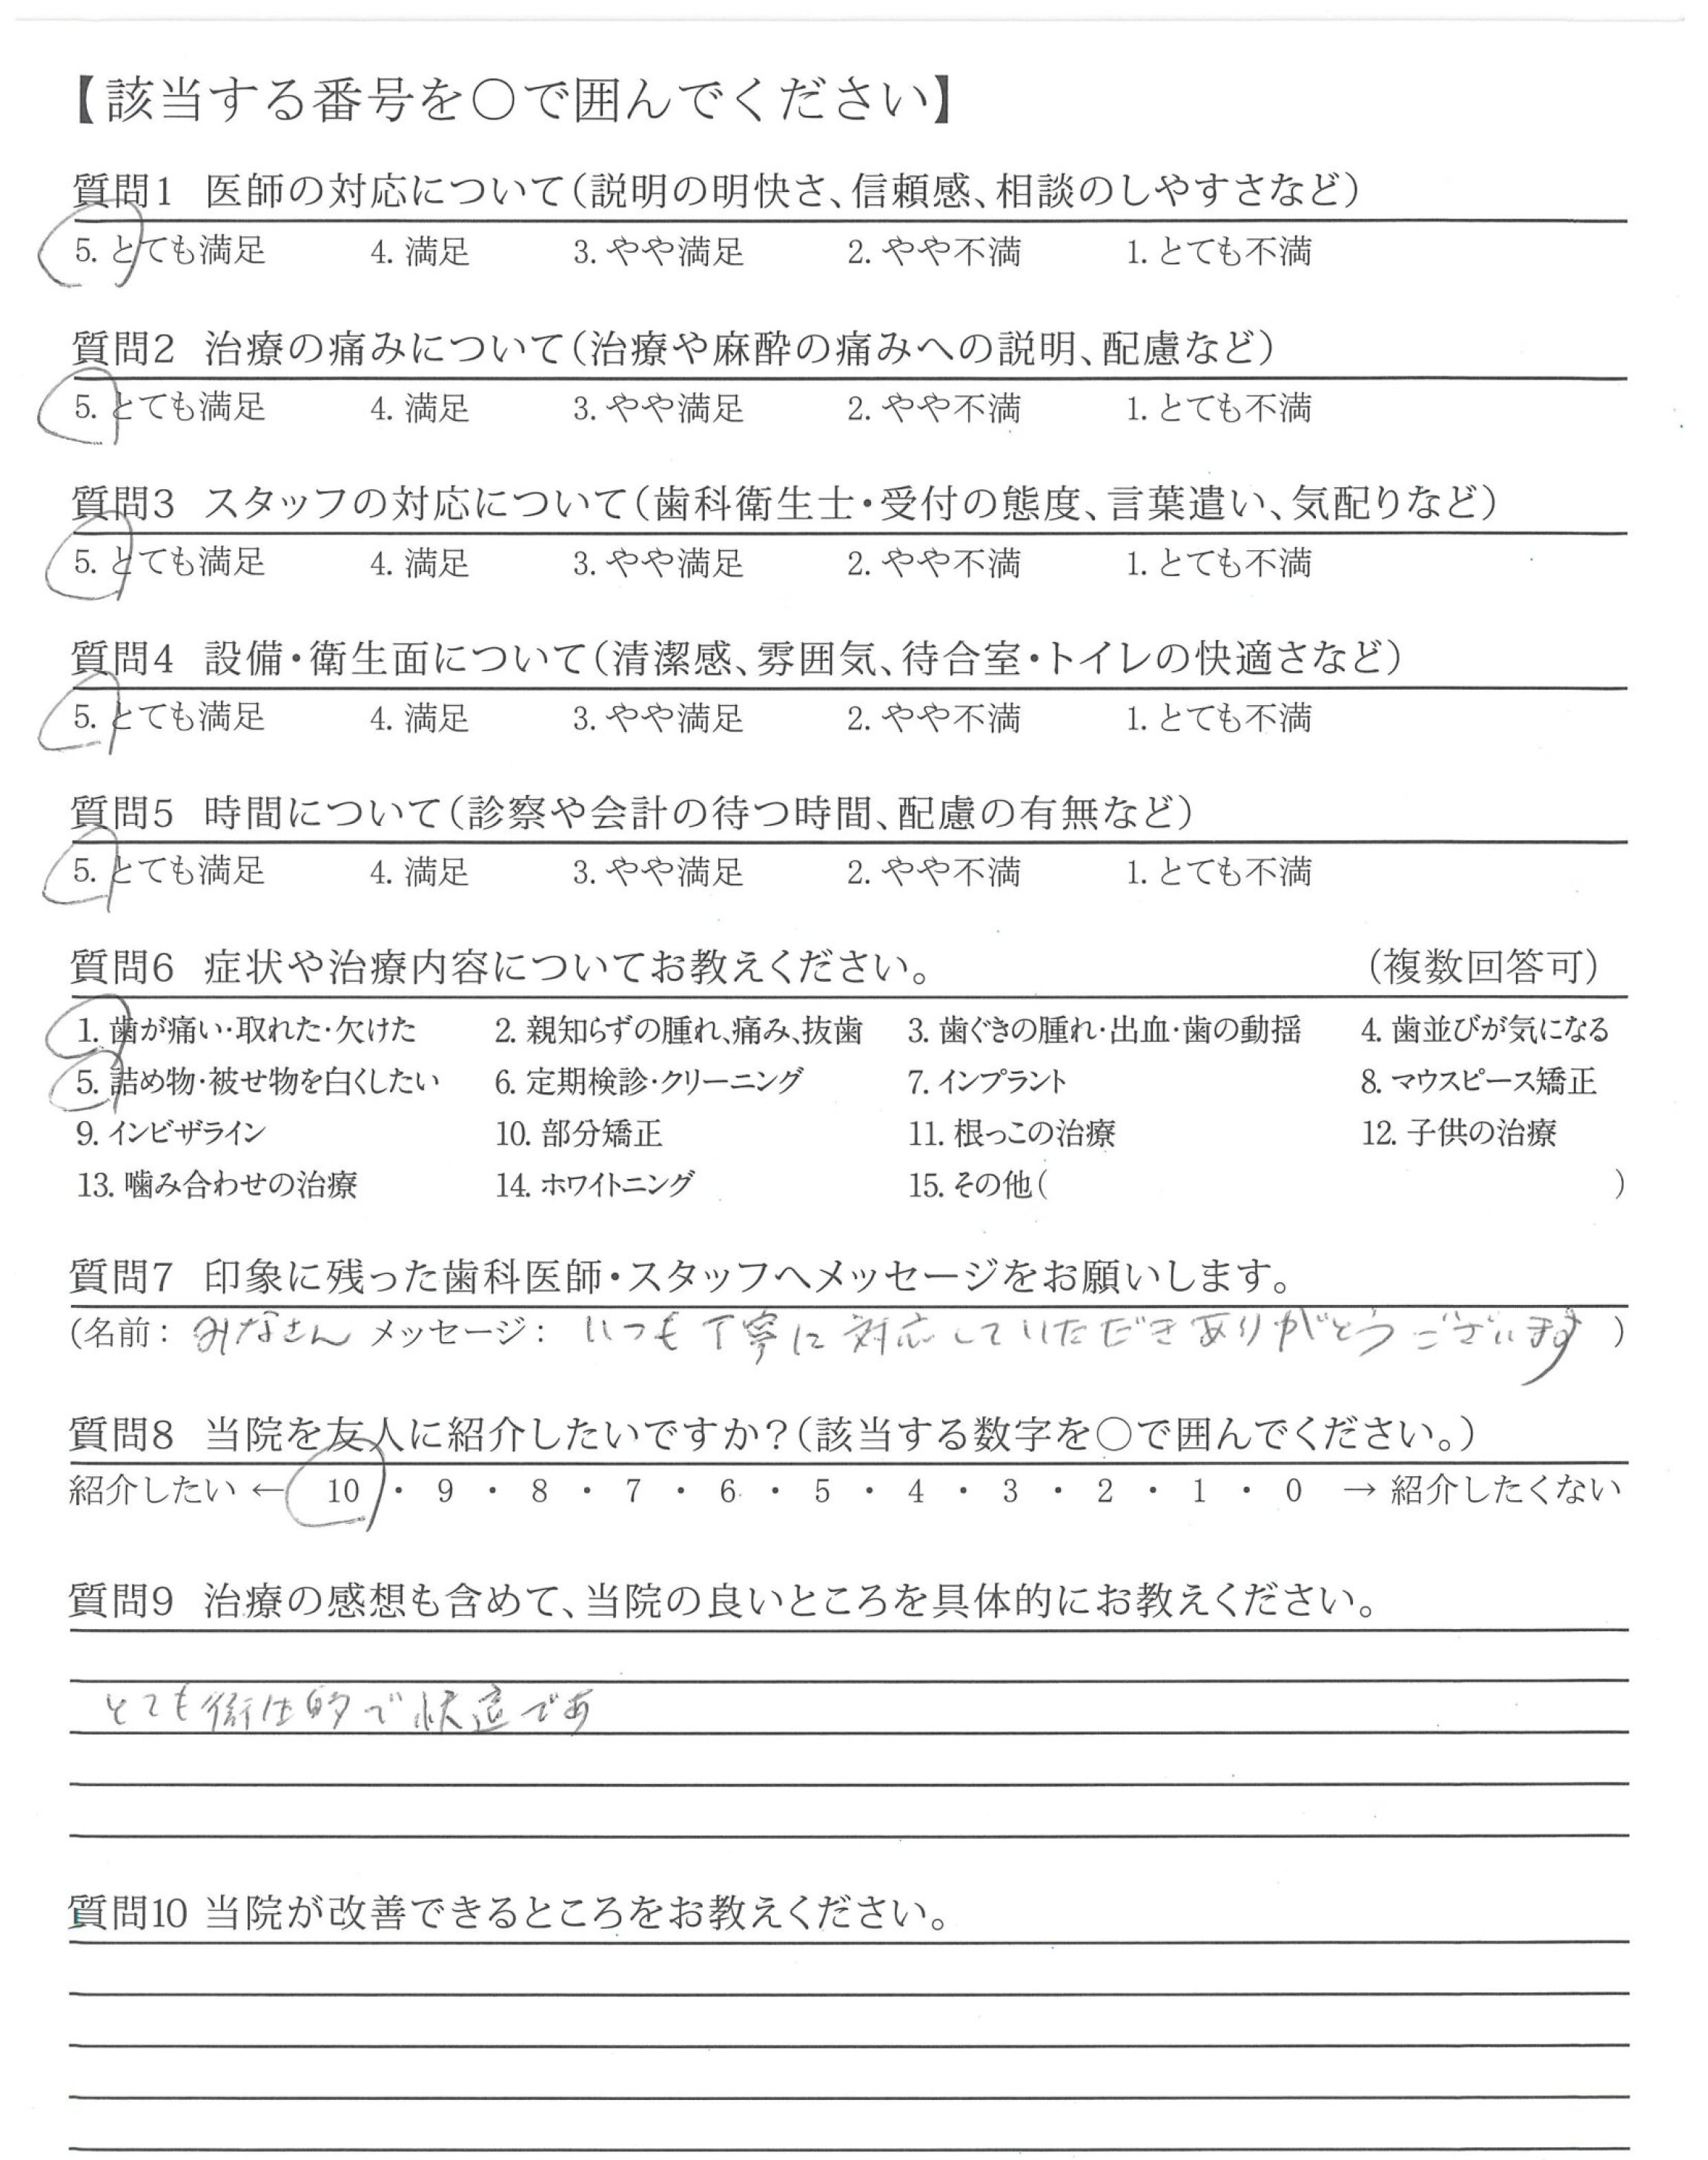 【該当する番号を○で囲んでください】
質問1 医師の対応について（説明の明快さ、信頼感、相談のしやすさなど）
5. とても満足 4. 満足 3. やや満足 2. やや不満 1. とても不満
質問2 治療の痛みについて（治療や麻酔の痛みへの説明、配慮など）
5. とても満足 4. 満足 3. やや満足 2. やや不満 1. とても不満
質問3 スタッフの対応について（歯科衛生士・受付の態度、言葉遣い、気配りなど）
5. とても満足 4. 満足 3. やや満足 2. やや不満 1. とても不満
質問4 設備・衛生面について（清潔感、雰囲気、待合室・トイレの快適さなど）
5. とても満足 4. 満足 3. やや満足 2. やや不満 1. とても不満
質問5 時間について（診察や会計の待つ時間、配慮の有無など）
5. とても満足 4. 満足 3. やや満足 2. やや不満 1. とても不満
質問6 症状や治療内容についてお教えください。 （複数回答可）
1. 歯が痛い・取れた・欠けた 2. 親知らずの腫れ、痛み、抜歯 3. 歯ぐきの腫れ・出血・歯の動揺 4. 歯並びが気になる
5. 詰め物・被せ物を白くしたい 6. 定期検診・クリーニング 7. インプラント 8. マウスピース矯正
9. インビザライン 10. 部分矯正 11. 根っこの治療 12. 子供の治療
13. 噛み合わせの治療 14. ホワイトニング 15. その他（ ）
質問7 印象に残った歯科医師・スタッフへメッセージをお願いします。
（名前： みなさん メッセージ： いつも丁寧に対応していただきありがとうございます ）
質問8 当院を友人に紹介したいですか？（該当する数字を○で囲んでください。）
紹介したい ← 10 ・ 9 ・ 8 ・ 7 ・ 6 ・ 5 ・ 4 ・ 3 ・ 2 ・ 1 ・ 0 → 紹介したくない
質問9 治療の感想も含めて、当院の良いところを具体的にお教えください。
とても衛生的で快適です
質問10 当院が改善できるところをお教えください。